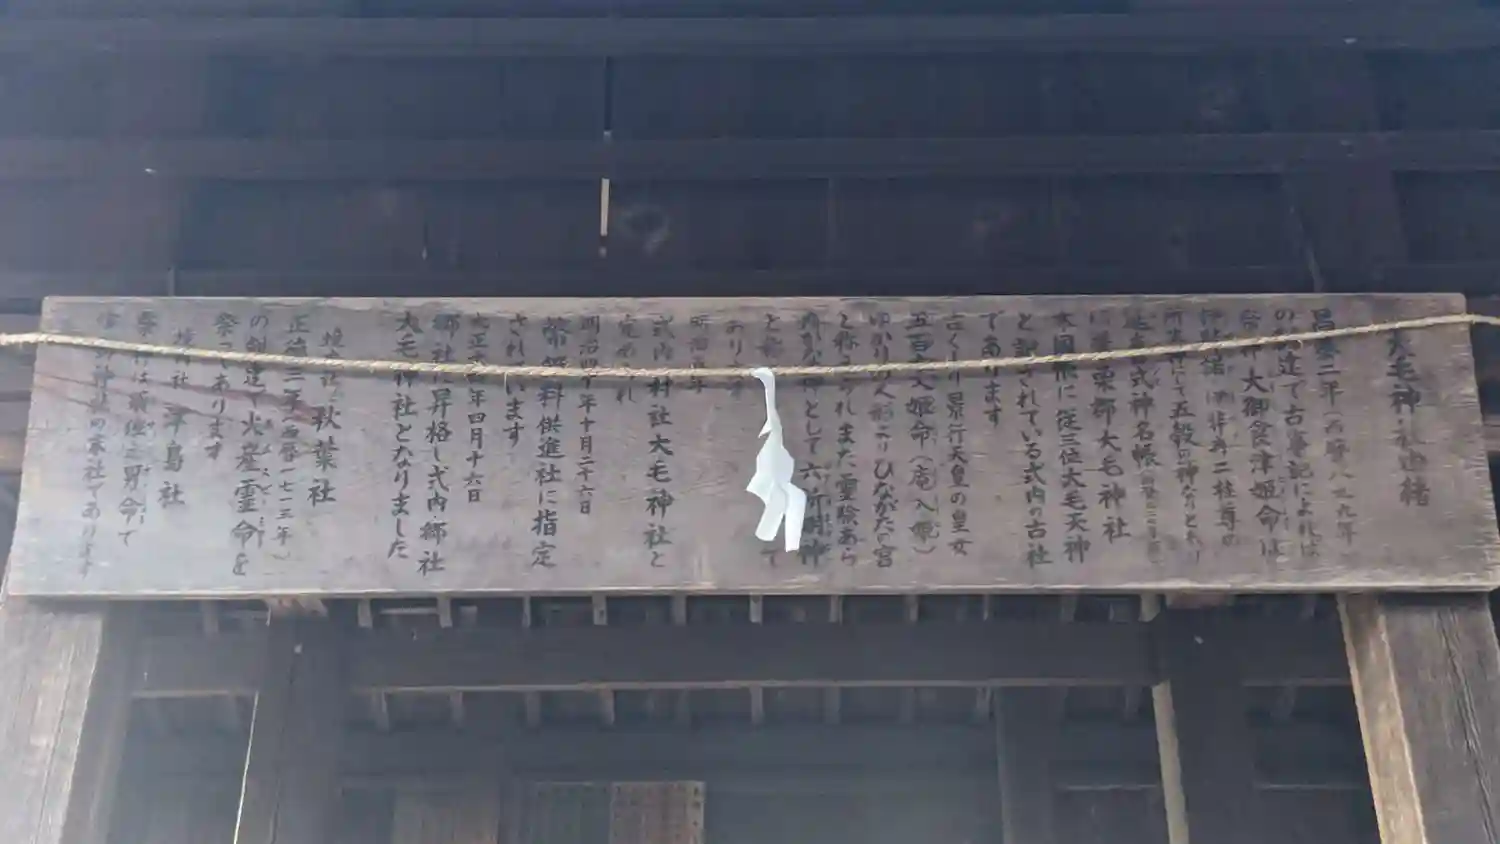 大毛神社由緒
昌泰二年(西暦八九九年)
の創建で古事記によれば
祭神 大御食津姫命は
伊弉諾 伊弉冉二柱尊の
御子にして五穀の神なりとあり
延喜式神名帳
に葉栗郡大毛神社
本国帳に従三位大毛天神
と記されている式内の古社
であります
古くより景行天皇の皇女
五百木入姫命(庵入姫)
ゆかりの人形えりひながたの宮
と称えられまた霊験あら
たかな神として六所明神
と
あり
明治五年
式内 村社大毛神社と
定められ
明治四十年十月二十六日
幣饌料供進社に指定
されています
大正十四年四月十六日
郷社に昇格し式内郷社
大毛神社となりました
境内社 秋葉社
正徳三年(西暦一七一三年)
の創建で火産霊命を
祭ってあります
境内社 津島社
祭神は須佐之男命で
の末社であります